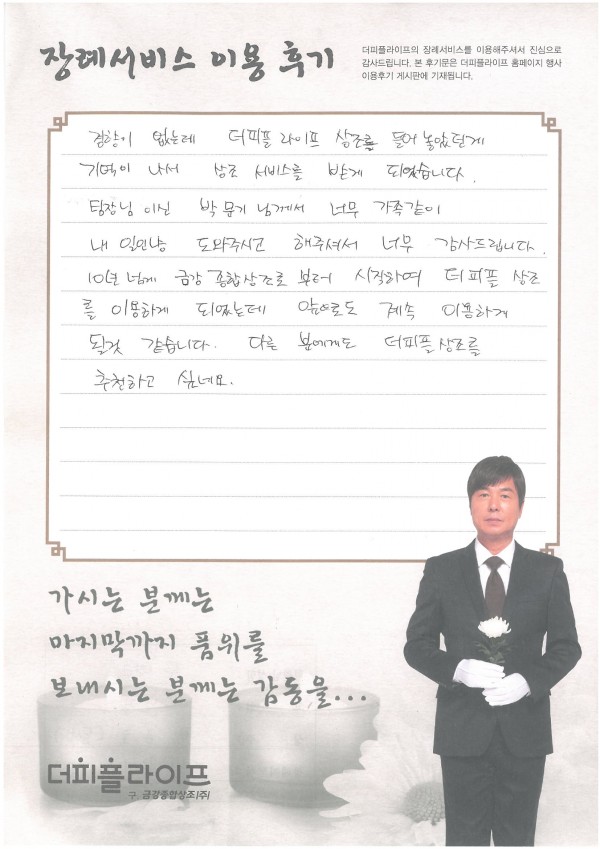 장례서비스 이용 후기
더피플라이프의 장례서비스를 이용해주셔서 진심으로
감사드립니다. 본 후기문은 더피플라이프 홈페이지 행사
이용후기 게시판에 기재됩니다.
경황이 없는데 더피플 라이프 상조를 들어 놓았던게
기억이 나서 상조 서비스를 받게 되었습니다.
팀장님 이신 박문기 님께서 너무 가족같이
내 일인냥 도와주시고 해주셔서 너무 감사드립니다.
10년 넘게 금강 종합상조로 부터 시작하여 더피플 상조
를 이용하게 되었는데 앞으로도 계속 이용하게
될것 같습니다. 다른 분에게도 더피플상조를
추천하고 싶네요.
가시는 분께는
마지막까지 품위를
보내시는 분께는 감동을...
더피플라이프
구. 금강종합상조(주)